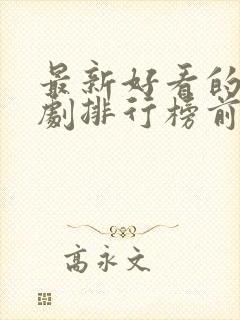 最新好看的
劇排行榜前
高永文